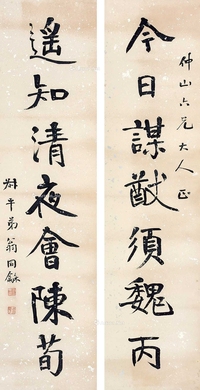 仲山六兄大人正
今日謀猷須魏丙
遥知清夜會陳荀
叔平弟翁同龢